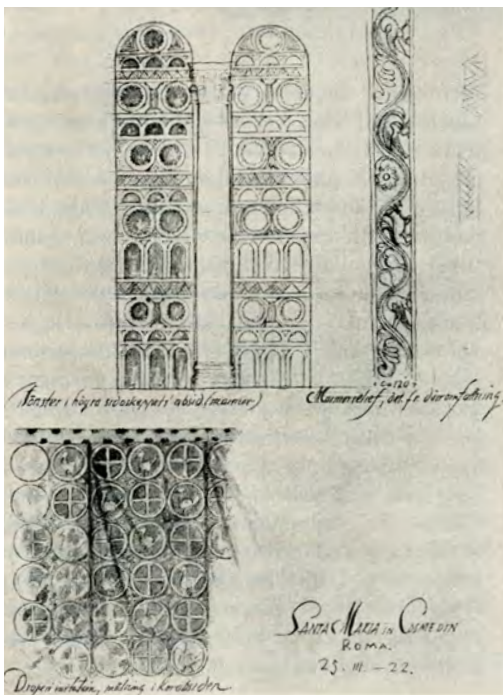 Fönster i högra sidoskeppets absid (marmor)
c=120
Marmorrelief, det. fr. döromfattning
Draperi imitation, målning i korabsiden
SANTA MARIA IN COSMEDIN
ROMA.
25. III. — 22.